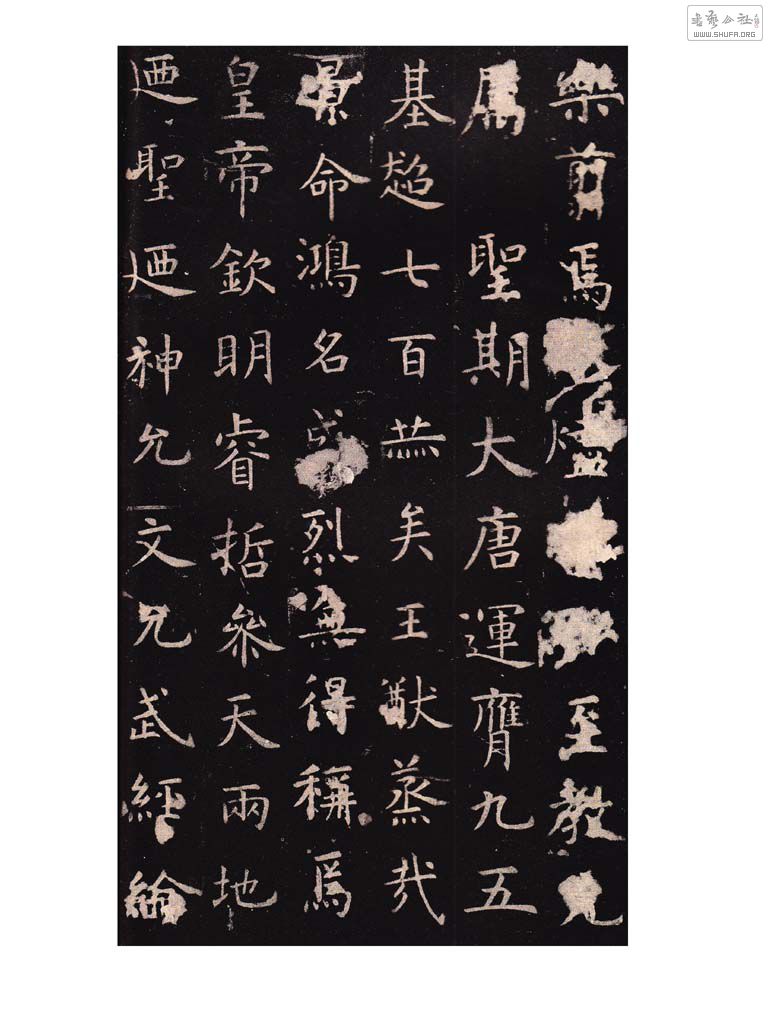 樂翦焉燼至教克
屬聖期大唐運膺九五
基超七百赫矣王猷蒸哉
景命鴻名盛烈無得稱焉
皇帝欽明睿哲參天兩地
迺聖迺神允文允武經綸
书艺公社
WWW.SHUFA.ORG